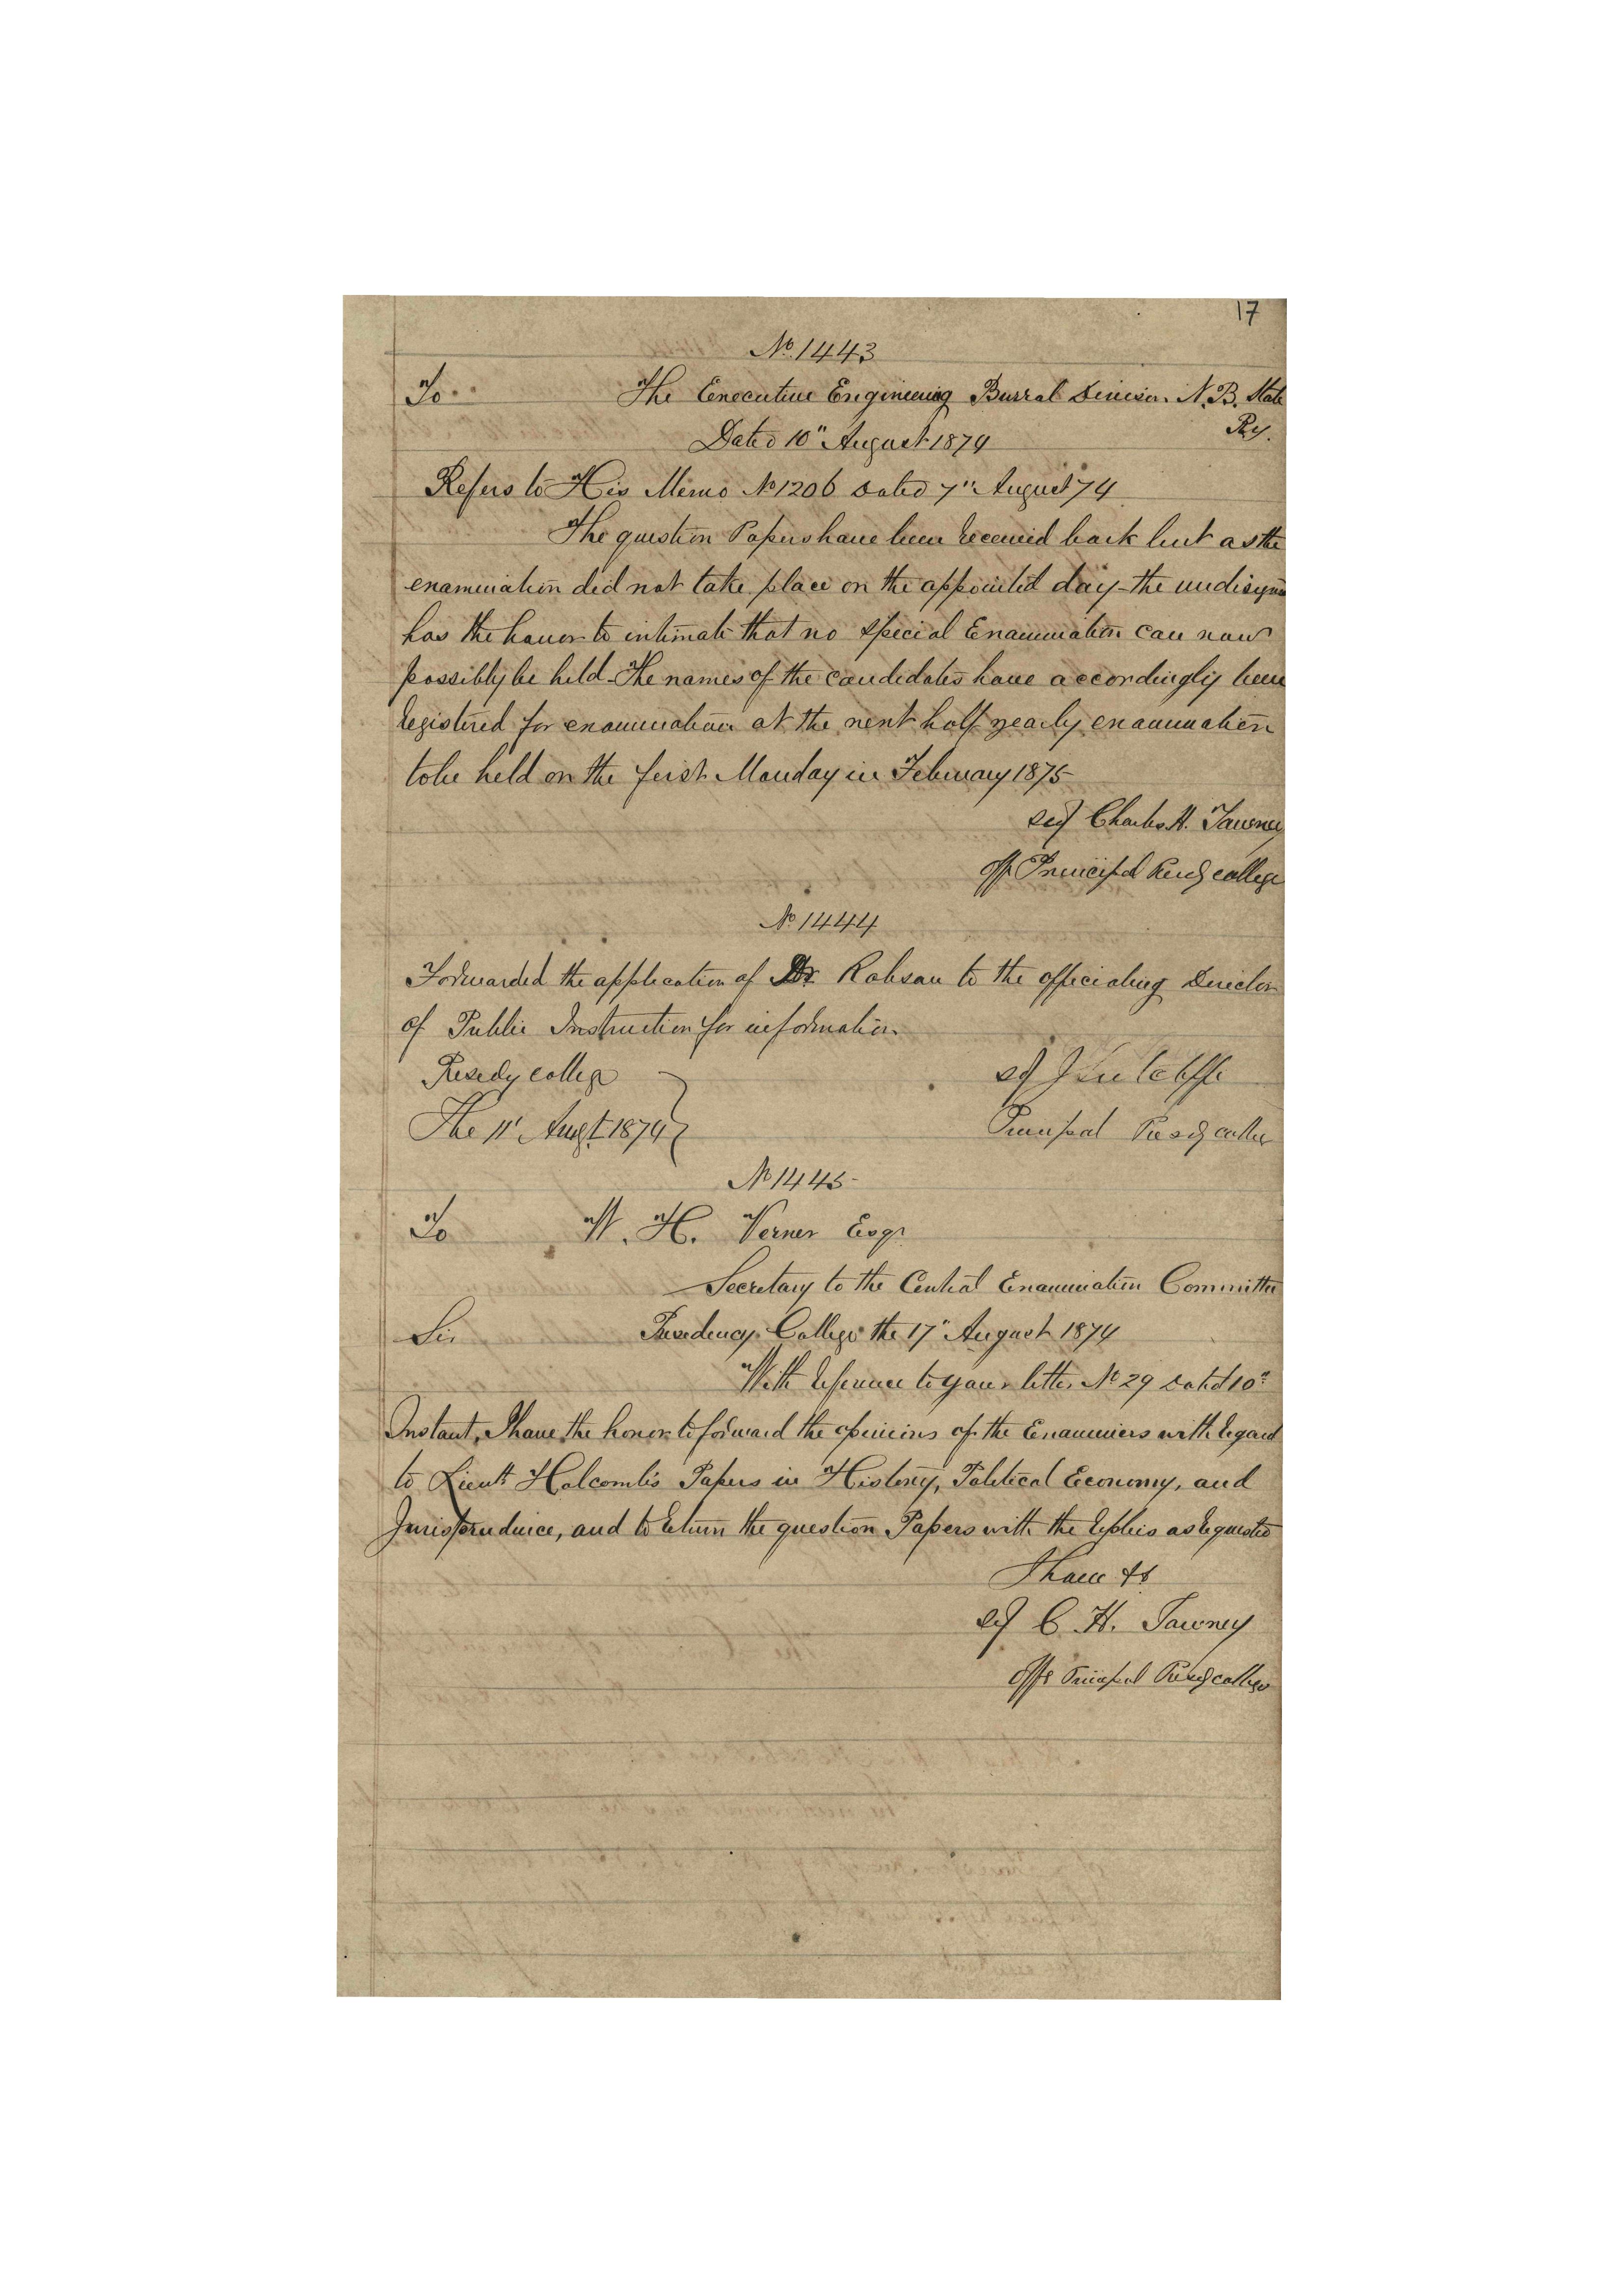 17
No 1443
To The Executive Engineering Burral Division N. B. State
Ry.
Dated 10" August 1874
Refers to His Memo No 1206 dated 7" August 74
The question Papers have been received back but as the
examination did not take place on the appointed day - the undisgnd
has the honor to intimate that no special Examination can now
possibly be held. The names of the candidates have accordingly been
registered for examination at the next half yearly examination
to be held on the first Monday in February 1875
sd/ Charles H. Tawney
Offg Principal Presdy college
No 1444
Forwarded the application of Mr Robson to the officiating Director
of Public Instruction for information
Presdy college sd/ J Sutcliffe
The 11" Augt 1874 Principal Presdy college
No 1445
To W. H. Verner Esqr
Secretary to the Central Examination Committee
Sir Presidency College the 17" August 1874
With reference to your letter No 29 dated 10th
Instant, I have the honor to forward the opinions of the Examiners with regard
to Lieut Holcomb's Papers in History, Political Economy, and
Jurisprudence, and to return the question Papers with the replies as requested
I have &c
sd/ C. H. Tawney
Offg Principal Presdy college